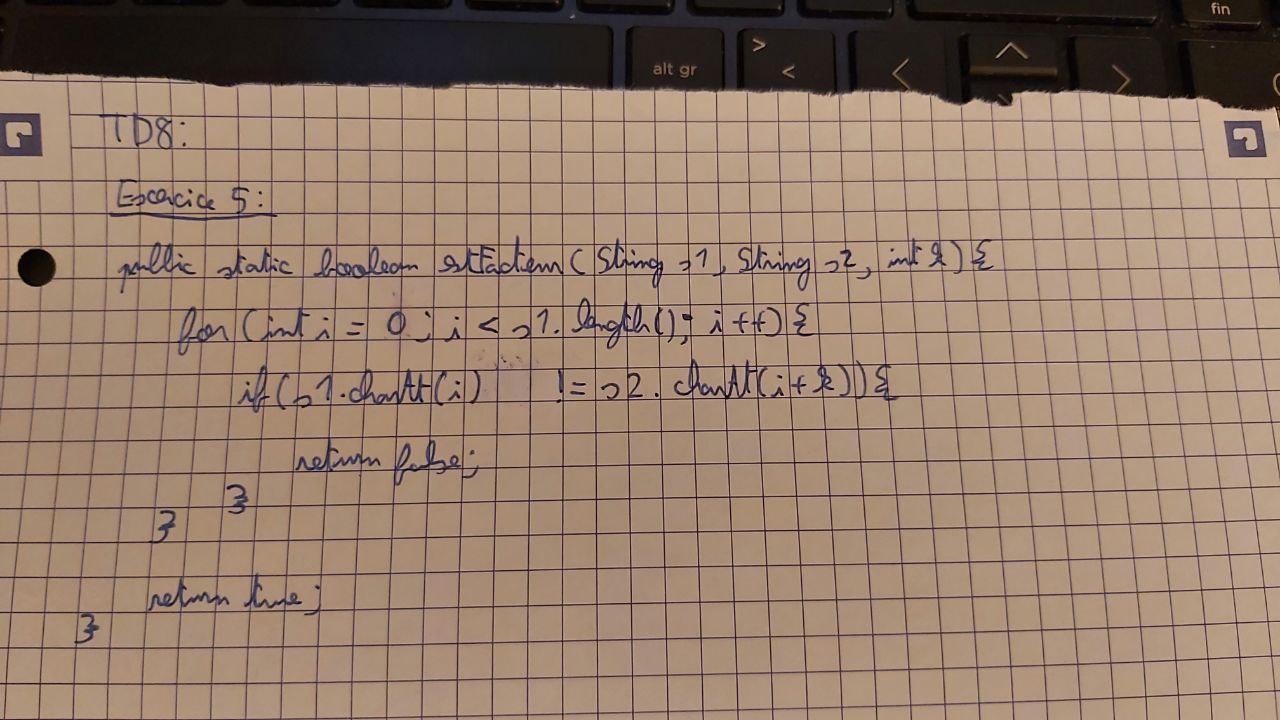 fin
alt gr
>
<
TD8:
Exercice 5:
public static boolean estFacteur(String s1, String s2, int k){
for(int i = 0; i < s1.length(); i++){
if(s1.charAt(i) != s2.charAt(i+k)){
return false;
}
}
return true;
}